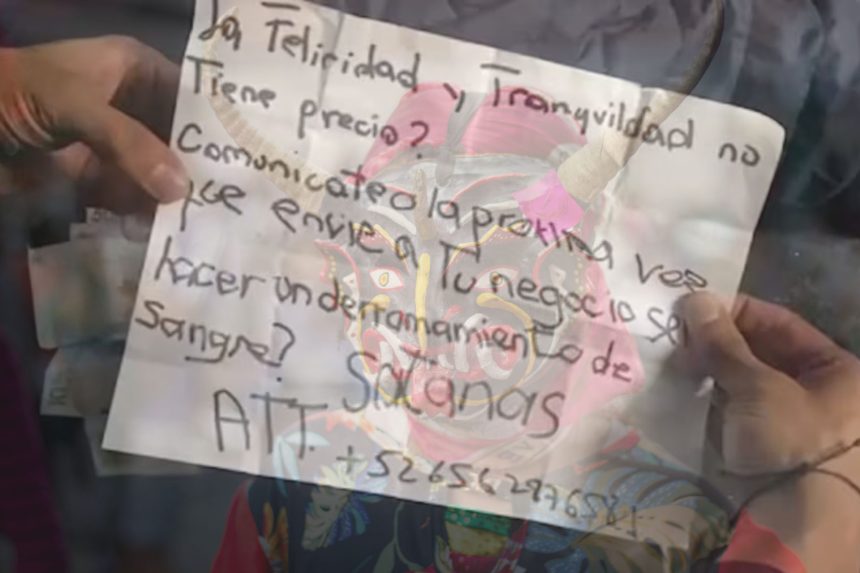 La Felicidad y Tranquildad no
Tiene precio?
Comunicate o la proxima vez
que envie a Tu negocio será
hacer un derramamiento de
Sangre?
Satanas
ATT.